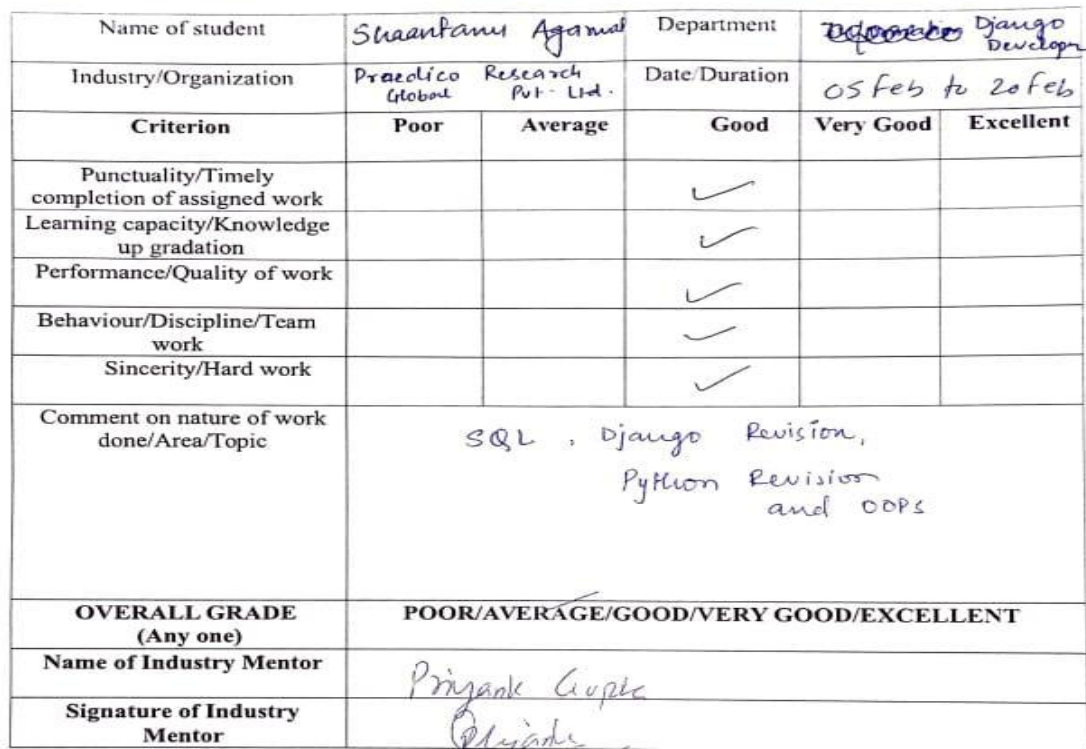 Name of student Shaantanu Agarwal Department Django Developer
Industry/Organization Praedico Global Research Pvt. Ltd. Date/Duration 05 Feb to 20 Feb
Criterion Poor Average Good Very Good Excellent
Punctuality/Timely
completion of assigned work ✓
Learning capacity/Knowledge
up gradation ✓
Performance/Quality of work ✓
Behaviour/Discipline/Team
work ✓
Sincerity/Hard work ✓
Comment on nature of work
done/Area/Topic
SQL, Django Revision,
Python Revision
and OOPS
OVERALL GRADE
(Any one)
POOR/AVERAGE/GOOD/VERY GOOD/EXCELLENT
Name of Industry Mentor Priyank Gupta
Signature of Industry
Mentor